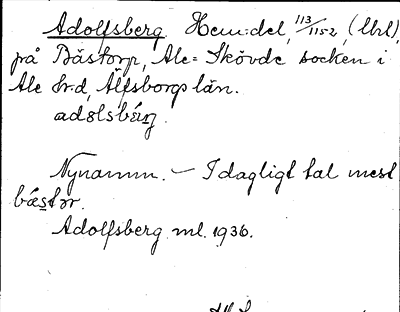 Adolfsberg Hem:del, 113/1152, (Ubl),
på Båstorp, Ale-Skövde socken i
Ale hrd, Älfsborgs län.
adolsbärj.
Nynamn. – I dagligt tal mest
båstor.
Adolfsberg ml. 1936.